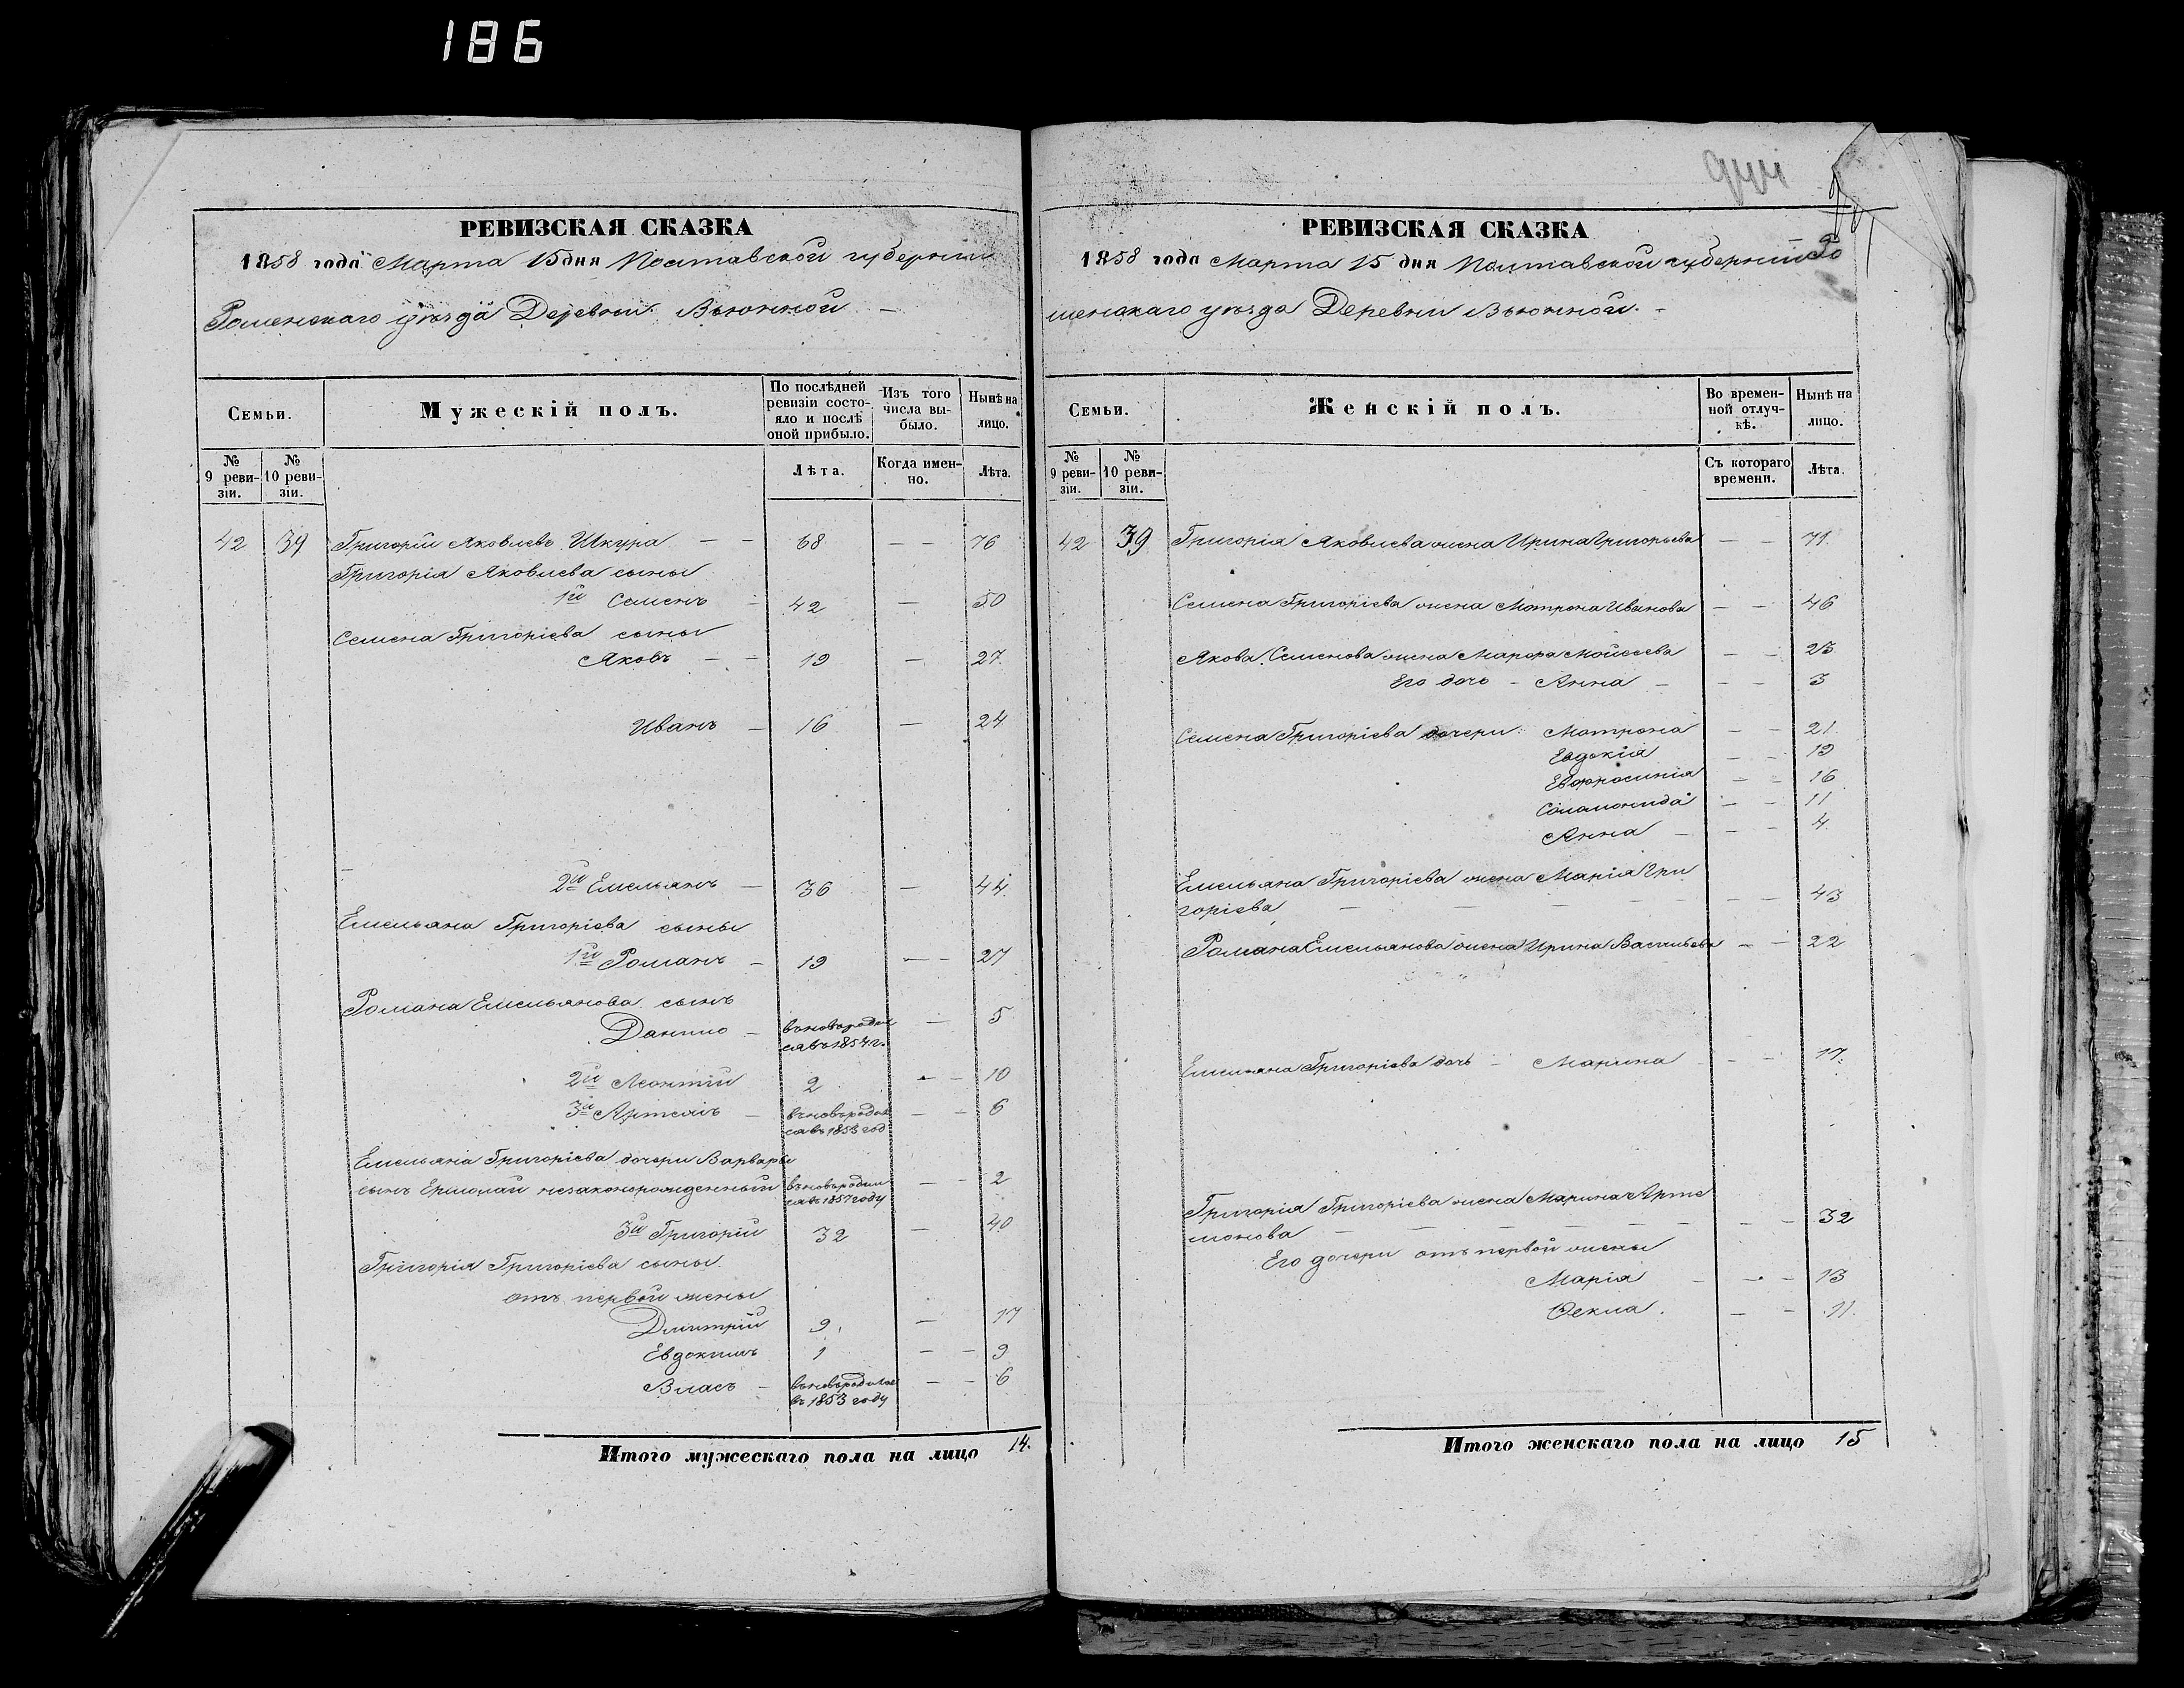 186
РЕВИЗСКАЯ СКАЗКА
1858 года Марта 15 дня Полтавской губернии
Роменскаго уѣзда Деревни Вьюнной
Семьи.
Мужескій полъ.
По послѣдней ревизіи состояло и послѣ оной прибыло.
Изъ того числа выбыло.
Нынѣ на лицо.
№ 9 ревизіи.
№ 10 ревизіи.
Лѣта.
Когда именно.
Лѣта.
42 39 Григорій Яковлевъ Шкура — — 68 — — 76
Григорія Яковлева сыны
1й Семенъ - 42 — 50
Семена Григоріева сыны
Яковъ — — 19 — 27
Иванъ — 16 — 24
2й Емельянъ — 36 — 44
Емельяна Григоріева сыны
1й Романъ — 19 — — 27
Романа Емельянова сынъ
Данило — вьновьродил — 5
ся въ 1854 г.
2й Леонтій 2 — 10
3й Артемъ — вьновьродил — — 6
ся въ 1853 год
Емельяна Григоріева дочери Варвары
сынъ Ермолай незаконорожденный вьновьродил — — 2
ся въ 1857 году
3й Григорій 32 — 40
Григорія Григоріева сыны
отъ первой жены
Дмитрій 9 — 17
Евдокимъ 1 — — 9
Власъ — вьновьродился — — 6
въ 1853 году
Итого мужескаго пола на лицо 14.
РЕВИЗСКАЯ СКАЗКА
1858 года Марта 15 дня Полтавской губерніи Ро
менскаго уѣзда Деревни Вьюнной. -
Семьи.
Женскій полъ.
Во временной отлучкѣ.
Нынѣ на лицо.
№ 9 ревизіи.
№ 10 ревизіи.
Съ котораго времени.
Лѣта.
42 39 Григорія Яковлева жена Ирина Григорьева — — 71
Семена Григоріева жена Мотрона Иванова — — 46
Якова Семенова жена Марфа Мойсеева — — 23
Его дочь - Анна — — — 3
Семена Григоріева дочери: Мотрона — — 21
Евдокія — — 19
Евфросинія — — 16
Соломонида — — 11
Анна — — — 4
Емельяна Григоріева жена Марія Гри
горіева — — — 43
Романа Емельянова жена Ирина Васильева — — 22
Емельяна Григоріева дочь — Марина — — 17
Григорія Григоріева жена Марина Арте
монова — — — 32
Его дочери отъ первой жены
Марія — — — 13
Ѳекла. — — 11
Итого женскаго пола на лицо 15